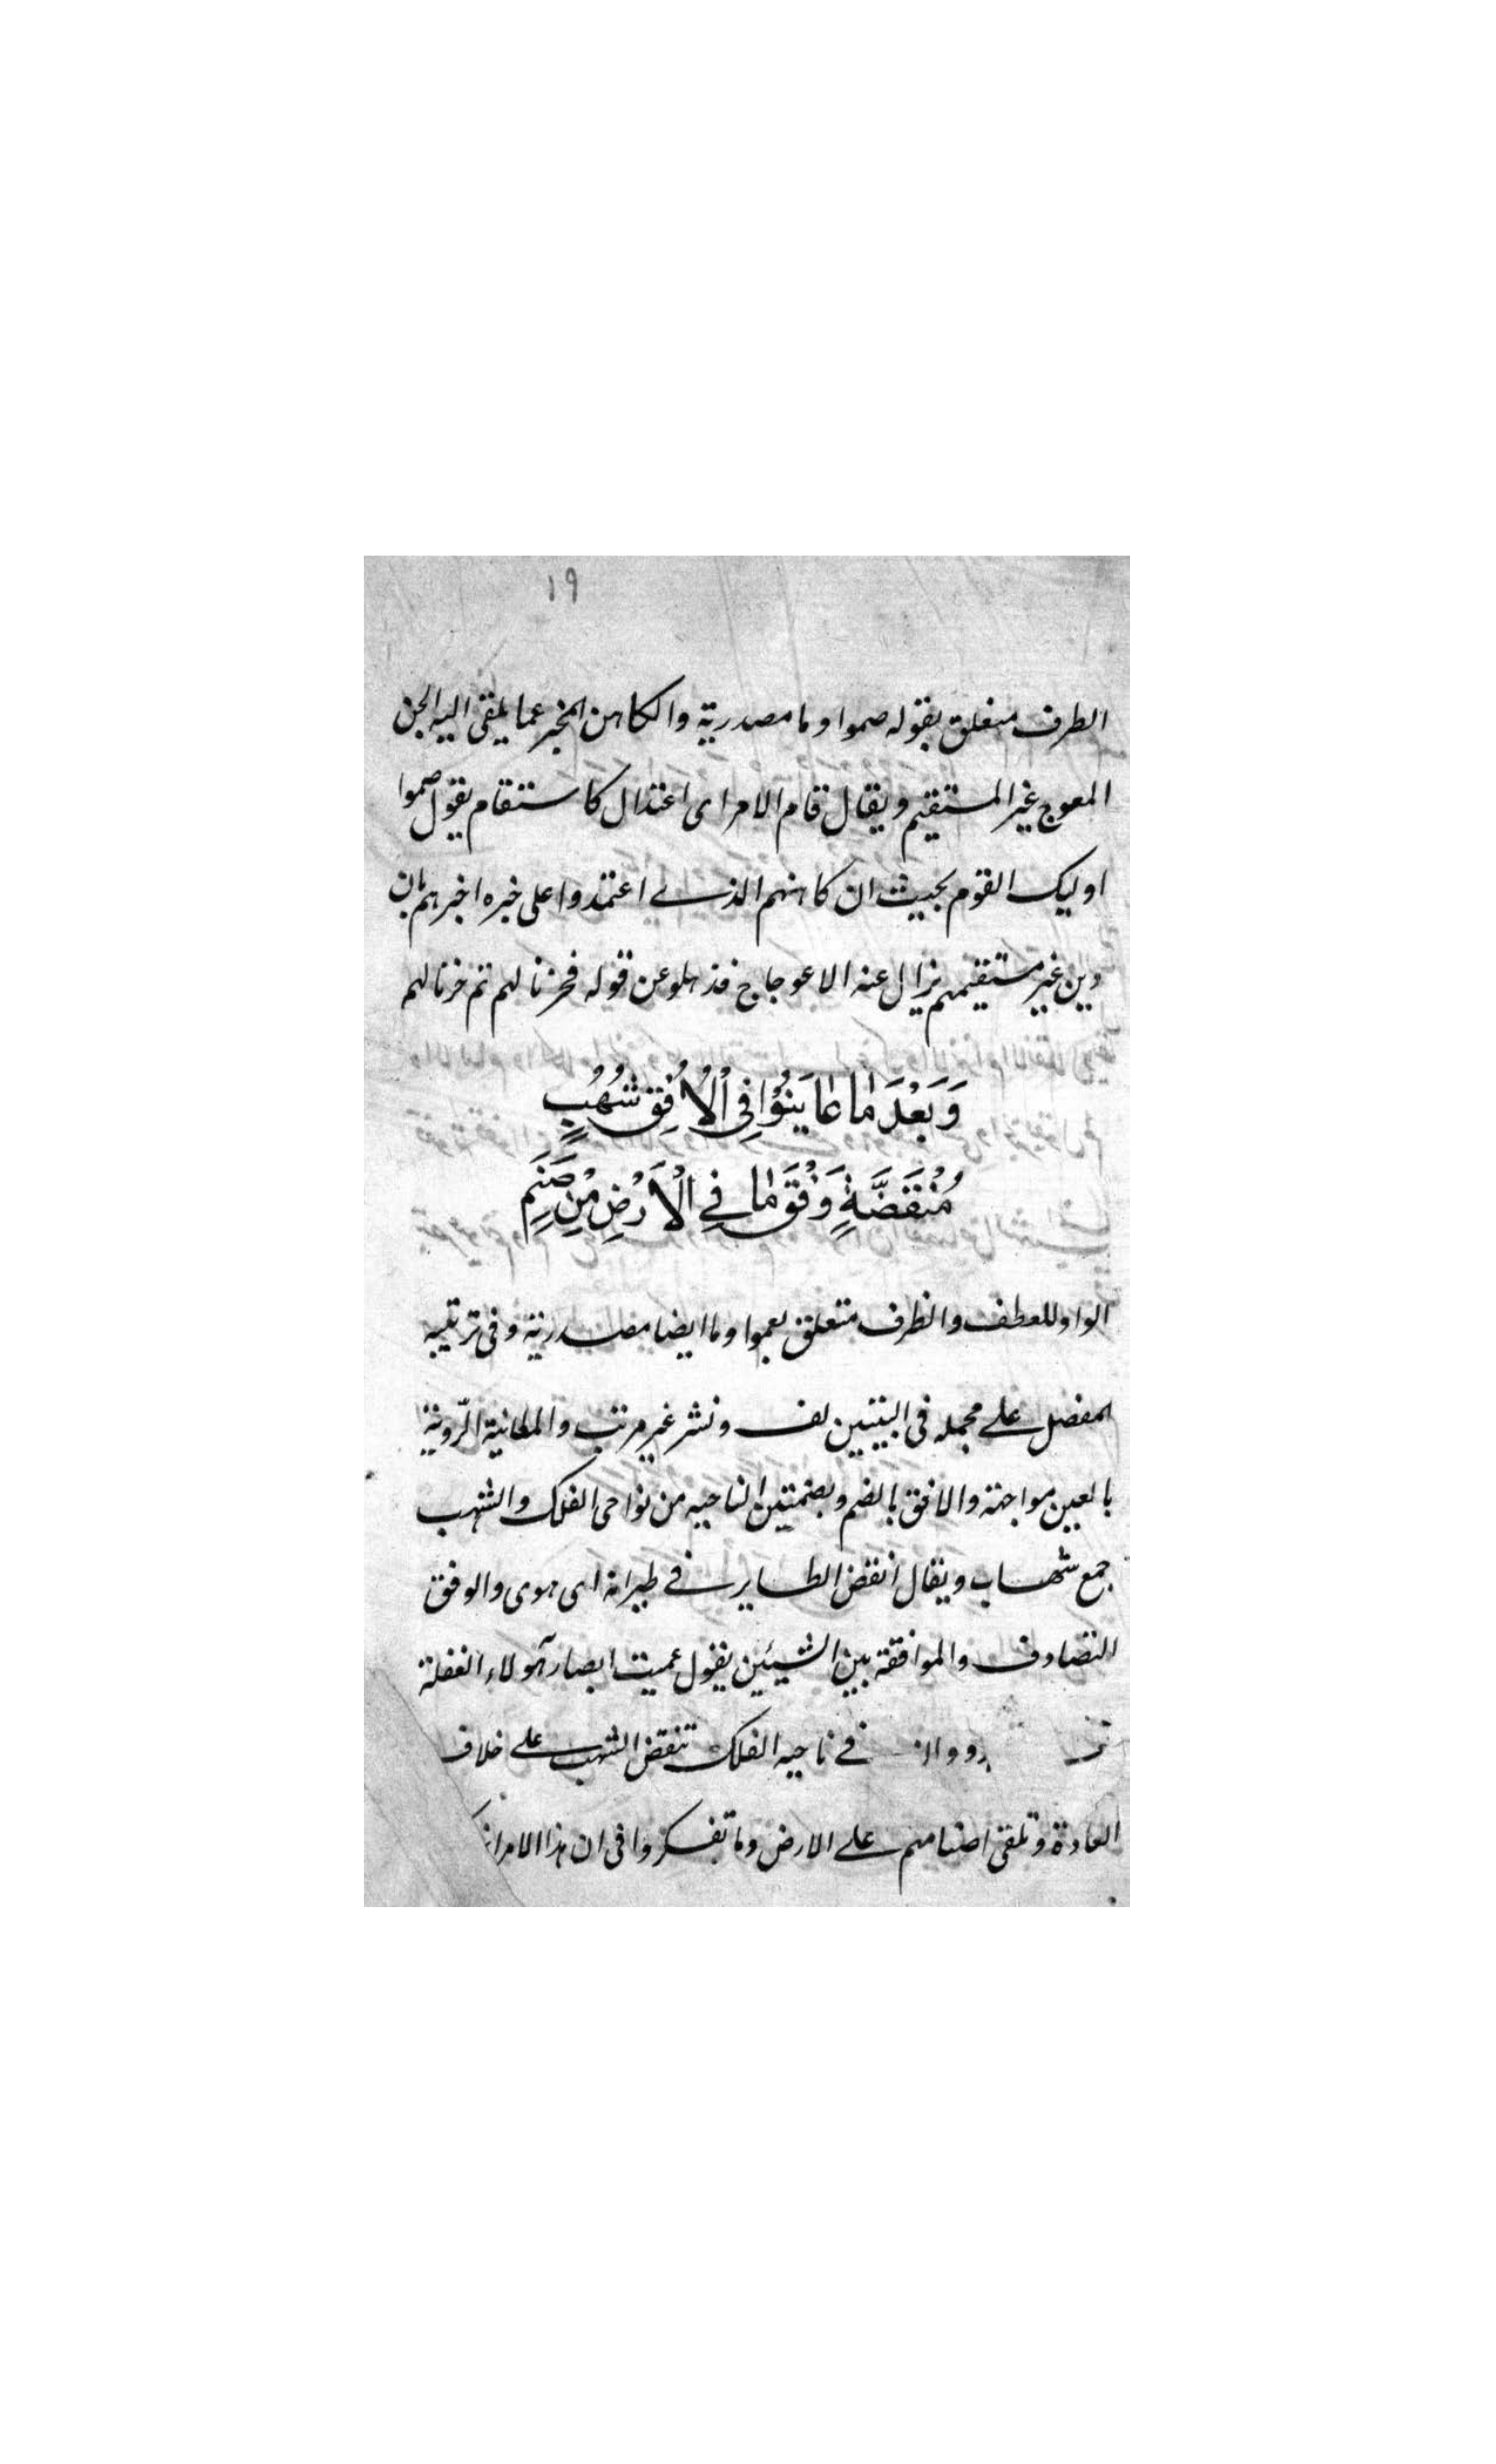 ١٩
الظرف متعلق بقوله صموا وما مصدرية والكاهن المخبر عما يلقى اليه الجن
المعوج غير المستقيم ويقال قام الامر اى اعتدال كاستقام يقول صموا
اوليك القوم بحيث ان كاهنهم الذي اعتمدوا على خبره اخبرهم بان
دين غير مستقيمهم يزال عنه الاعوجاج فذهلو عن قوله فحزنا لهم ثم حزنا لهم
وَبَعْدَ مَا عَايَنُوْا فِي الْاُفُقِ شُهُبٍ
مُنْقَضَّةٍ وَفْقَ مَا فِي الْاَرْضِ مِنْ صَنَمِ
الواو للعطف والظرف متعلق بعموا وما ايضا مصدرية وفى ترتيبه
المفصل على مجمله فى البيتين لف ونشر غير مرتب والمعانية الرّوية
بالعين مواجهة والافق بالضم وبضمتين الناحيه من نواحى الفلك والشهب
جمع شهاب ويقال انقض الطاير في طيرانه اى هوى والوفق
التصادف والموافقة بين الشيئين يقول عميت ابصار هولاء الغفلة
في ناحيه الفلك تنقض الشهب على خلاف
العادة وتلقى اصنامهم على الارض وما تفكروا فى ان هذا الامر